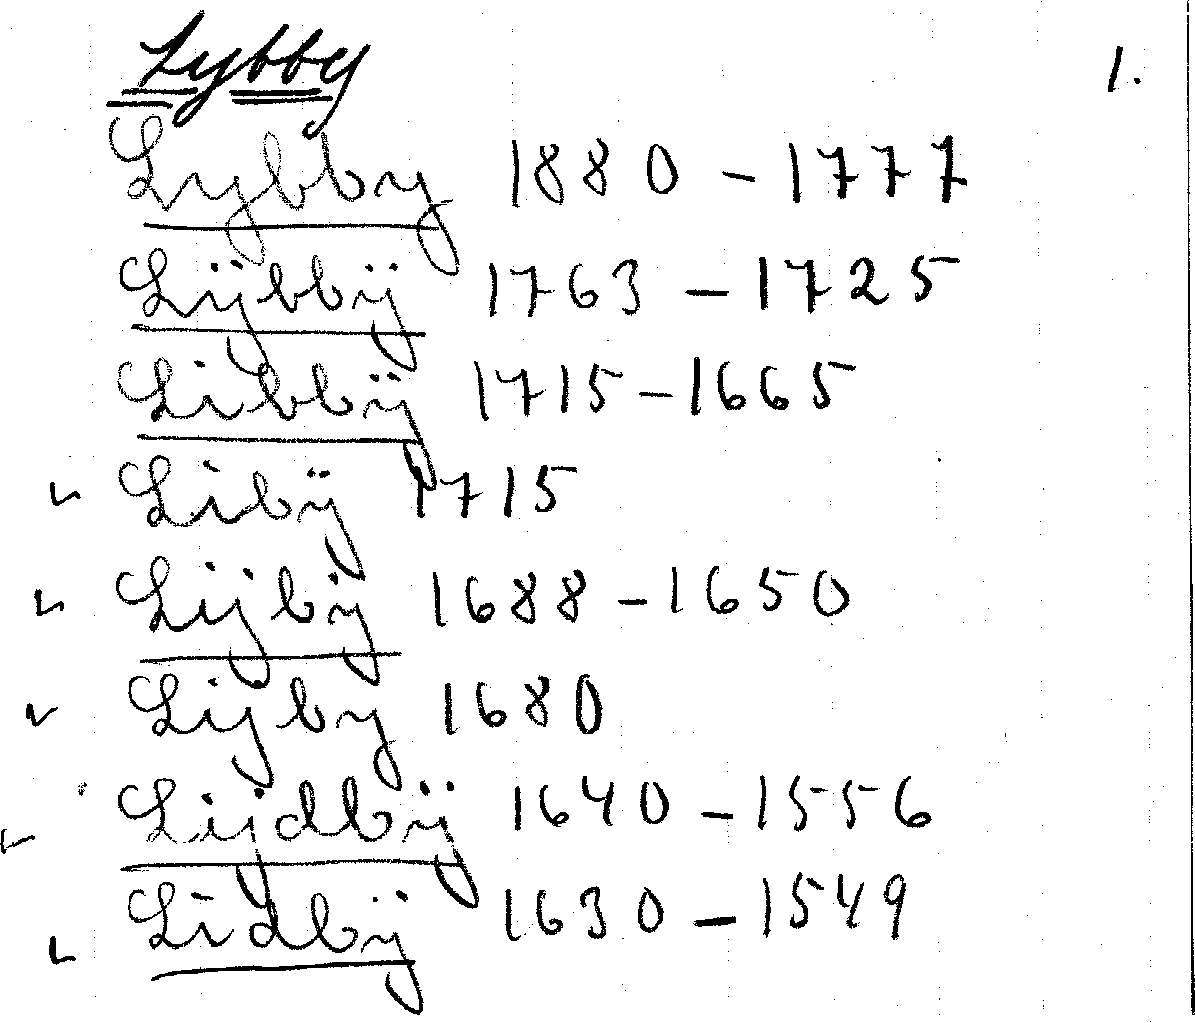 Lybby 1.
Lybby 1880 - 1777
Lÿbbÿ 1763 - 1725
Libbÿ 1715 - 1665
Libÿ 1715
Lijbÿ 1688 - 1650
Lijby 1680
Lijdbÿ 1640 - 1556
Lidbÿ 1630 - 1549